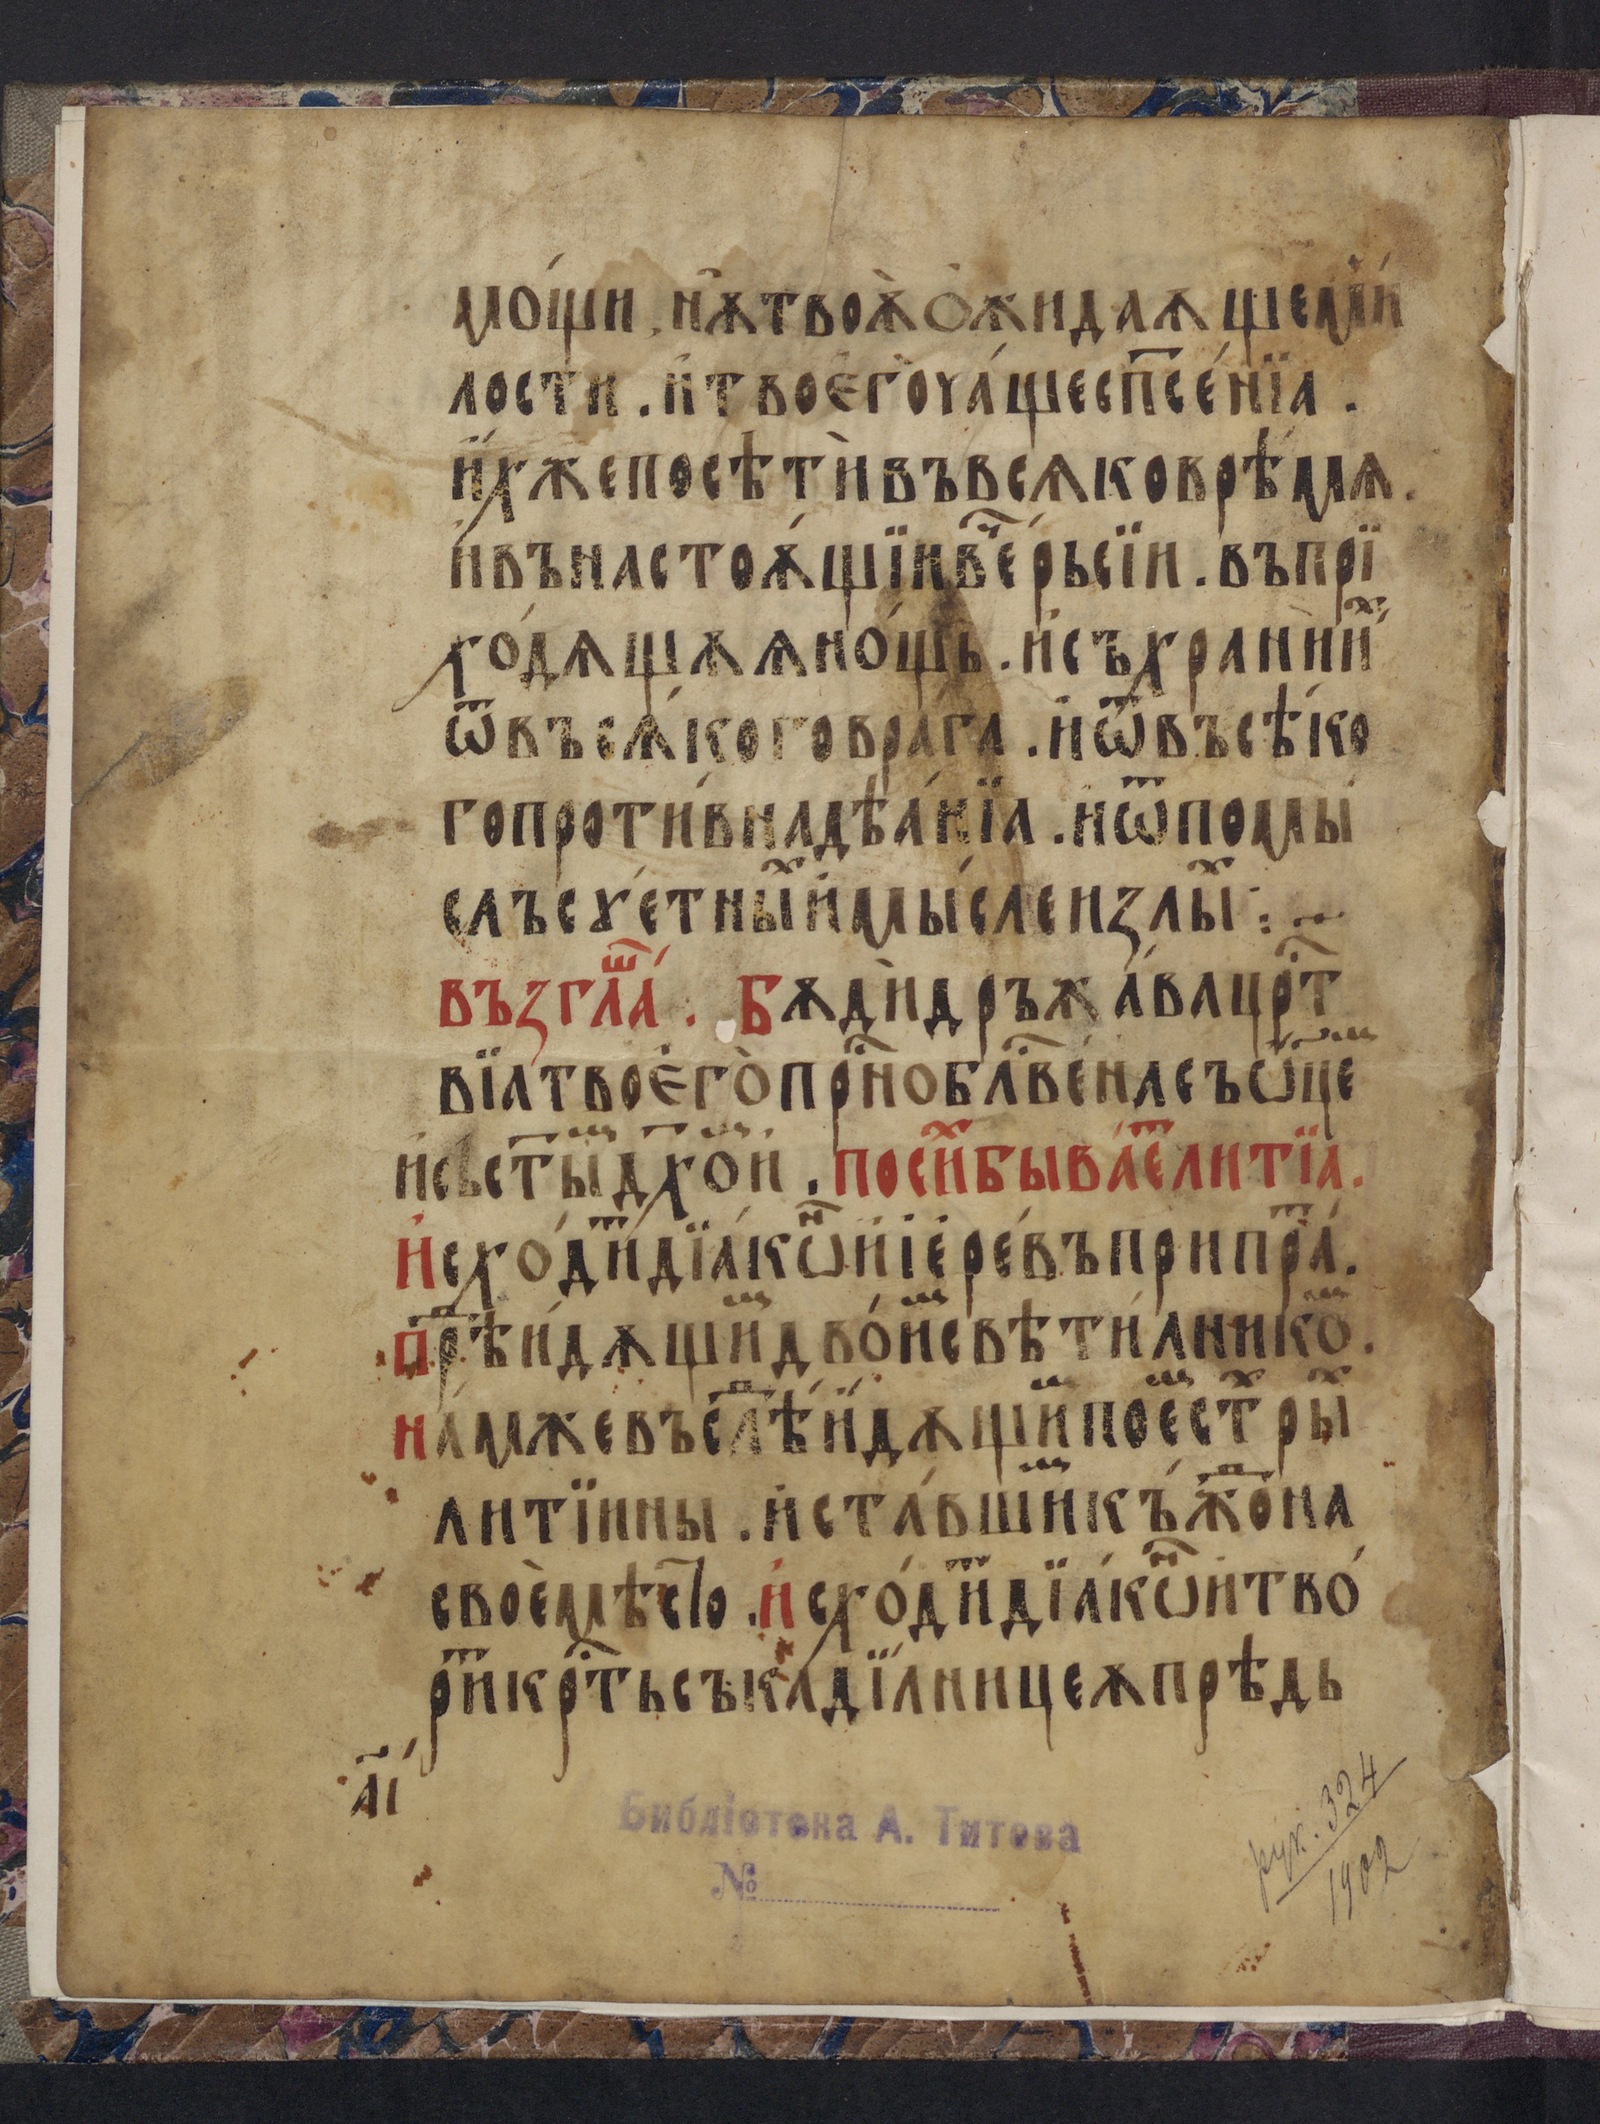 мо́щи, нѫ твоѧ̀ ѻ҆жидаѧщемѝ
лости. и҆ твоє҆гò ча́ще сп҃се́нїа.
и҆́хже посѣтѝ въ всѧко врѣ́мѧ.
и҆ въ настоѧ́щїи в҃е́рь сїи. въ прї
хо́дѧщѫѧ но́щь. и҆ съхранѝ и҆ⷯ
ѿ въсѧ́кого врага. и҆ ѿ въсѣ́ко
го проти́вна дѣа́нїа. и ѿ помы́
слъ сꙋ́етныⷯ и҆ мы́слеи ꙁлыⷯ:~
въꙁглаⷲ҇́. Бѫдѝ дръжа́ва црⷭ҇т
вїа твоє҆гò прⷭ҇но блⷭ҇ве́на съ ѡ҆це
и҆ съ ст҃ыⷨ дх҃оⷨ и҆. по сиⷯ быва́еⷮ литїа.
И҆схо́диⷮ дїа́кѡⷩ и҆ і҆є҆ре́ въ припраⷮ́.
прѣⷣи́дѧщиⷨ дво́иⷨ свѣти́лникоⷨ.
на́мже въслѣ́ⷣ и҆́дѧщиⷨ поеⷨ стⷯрыⷯ
литїины. и҆ ста́вшиⷨ къ́жⷣо на
своѐ мѣ́сто. и҆схо́диⷮ дїа́кѡⷩ и҆ тво́
риⷮ крⷭ҇ть съ кадїлницеѧ прѣдь
а҃і
Библіотека А. Титова
№
рук. 324
1902